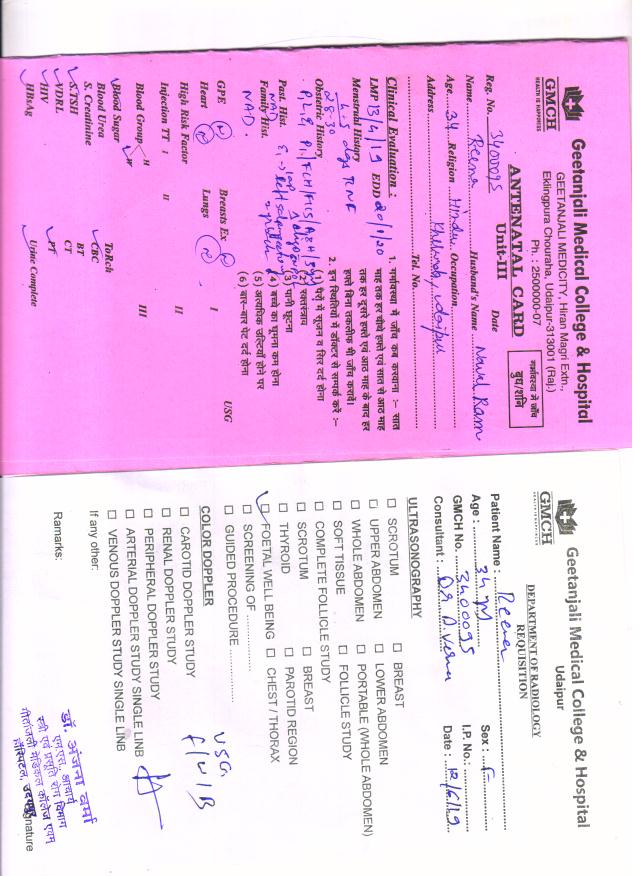 Geetanjali Medical College & Hospital
GEETANJALI MEDICITY, Hiran Magri Extn.,
Eklingpura Chouraha, Udaipur-313001 (Raj.)
Ph. : 2500000-07
GMCH
HEALTH IS HAPPINESS
ANTENATAL CARD
Unit-III
गर्भावस्था में जाँच
बुध/शनि
Reg. No. 3400095 Date
Name Reena Husband's Name Naval Ram
Age 34 Religion Hindu Occupation
Address Udaipur
Tel. No.
Clinical Evaluation :
LMP 13/4/19 EDD 20/1/20
Menstrual History
4-5 days
28-30
Obstetric History
Past. Hist.
NAD
Family Hist.
NAD.
1. गर्भावस्था में जाँच कब करवाना :- सात
माह तक हर चौथे हफ्ते एवं सात से आठ माह
तक हर दूसरे हफ्ते एवं आठ माह के बाद हर
हफ्ते बिना तकलीफ भी जाँच करावें।
2. इन स्थितियों में डॉक्टर से सम्पर्क करें :-
(1) पैरो में सूजन व सिर दर्द होना
(2) रक्तस्त्राव
(3) पानी छूटना
(4) बच्चे का घूमना कम होना
(5) अत्यधिक उल्टियाँ होने पर
(6) बार-बार पेट दर्द होना
GPE N Breasts Ex N
Heart N Lungs N
USG
I
II
III
High Risk Factor
Injection TT I II
Blood Group
Blood Sugar
Blood Urea
S. Creatinine
S.TSH
VDRL
HIV
HBsAg
ToRch
CBC
BT
CT
PT
Urine Complete
Geetanjali Medical College & Hospital
Udaipur
GMCH
HEALTH IS HAPPINESS
DEPARTMENT OF RADIOLOGY
REQUISITION
Patient Name : Reena
Age : 34 yr Sex : F
GMCH No. 3400095 I.P. No.:
Consultant : Dr. A. Verma Date : 12/6/19
ULTRASONOGRAPHY
SCROTUM BREAST
UPPER ABDOMEN LOWER ABDOMEN
WHOLE ABDOMEN PORTABLE (WHOLE ABDOMEN)
SOFT TISSUE FOLLICLE STUDY
COMPLETE FOLLICLE STUDY
SCROTUM BREAST
THYROID PAROTID REGION
FOETAL WELL BEING CHEST / THORAX
SCREENING OF
GUIDED PROCEDURE
COLOR DOPPLER
CAROTID DOPPLER STUDY
RENAL DOPPLER STUDY
PERIPHERAL DOPPLER STUDY
ARTERIAL DOPPLER STUDY SINGLE LINB
VENOUS DOPPLER STUDY SINGLE LINB
If any other:
USG
F/W/B
Ramarks:
डॉ. अंजना वर्मा
एम.एस. आचार्य
स्त्री एवं प्रसूति रोग विभाग
गीतांजली मेडिकल कॉलेज एवम्
हॉस्पिटल, उदयपुर